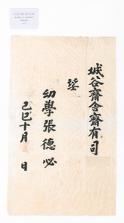 城谷齋舍齋有司
望
幼學張德必
己巳十月 日